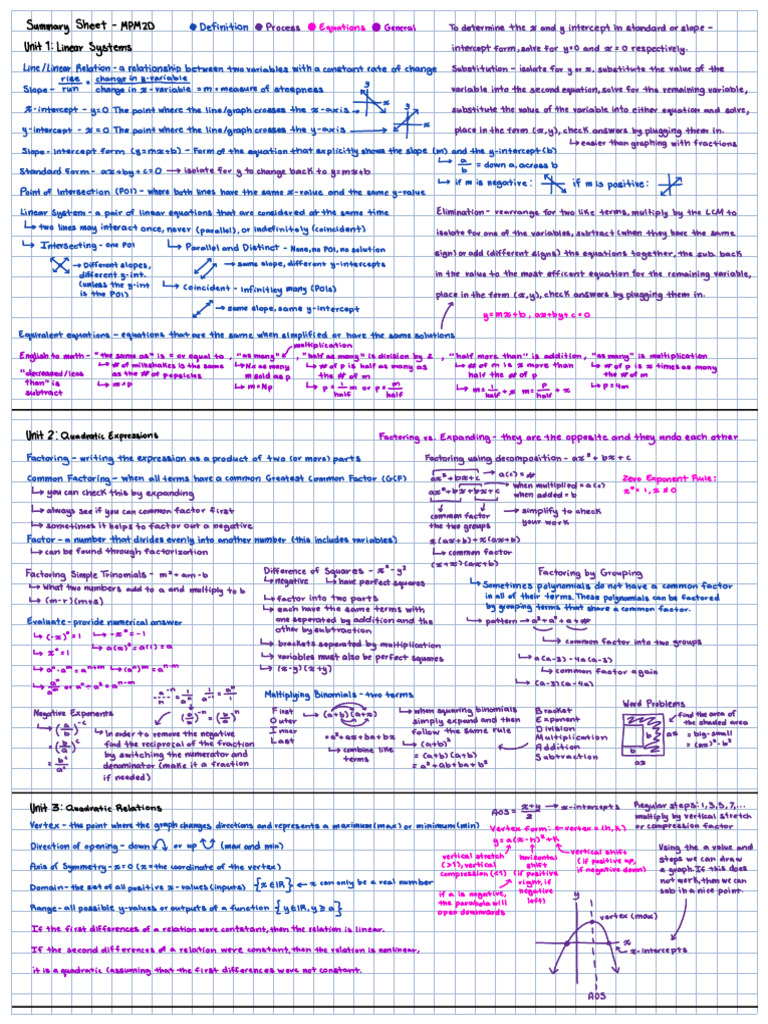 Summary Sheet - MPM2D
Definition Process Equations General
Unit 1: Linear Systems
Line/Linear Relation - a relationship between two variables with a constant rate of change
Slope - rise/run = change in y-variable/change in x-variable = m = measure of steepness
x-intercept - y=0 The point where the line/graph crosses the x-axis →
y-intercept - x=0 The point where the line/graph crosses the y-axis →
Slope-intercept form (y=mx+b) - Form of the equation that explicitly shows the slope (m) and the y-intercept (b)
↳ a/b = down a, across b
↳ if m is negative: if m is positive:
Standard form - ax+by+c=0 → isolate for y to change back to y=mx+b
Point of Intersection (POI) - where both lines have the same x-value and the same y-value
Linear System - a pair of linear equations that are considered at the same time
↳ two lines may interact once, never (parallel), or indefinitely (coincident)
↳ Intersecting - one POI
→ Different slopes,
different y-int.
(unless the y-int
is the POIs)
↳ Parallel and Distinct - None, no POI, no solution
→ same slope, different y-intercepts
↳ Coincident - Infinitley many (POIs)
→ same slope, same y-intercept
Equivalent equations - equations that are the same when simplified or have the same solutions
To determine the x and y intercept in standard or slope -
intercept form, solve for y=0 and x=0 respectively.
Substitution - isolate for y or x. substitute the value of the
variable into the second equation, solve for the remaining variable,
substitute the value of the variable into either equation and solve,
place in the term (x,y), check answers by plugging them in.
↳ easier than graphing with fractions
Elimination - rearrange for two like terms, multiply by the LCM to
isolate for one of the variables, subtract (when they have the same
sign) or add (different signs) the equations together, the sub. back
in the value to the most efficent equation for the remaining variable,
place in the form (x,y), check answers by plugging them in.
y=mx+b, ax+by+c=0
multiplication
English to math - "the same as" is = or equal to, "as many", "half as many" is division by 2, "half more than" is addition, "as many" is multiplication
"decreased/less
than" is
subtract
↳ # of milkshakes is the same
as the # of popsicles
↳ m=p
↳ Nx as many
m sold as p
↳ m=Np
↳ # of p is half as many as
the # of m
↳ p = 1/half m or p = m/half
↳ # of m is x more than
half the # of p
↳ m = 1/half + x m = p/half + x
↳ # of p is x times as many
the # of m
↳ p=4m
Unit 2: Quadratic Expressions
Factoring vs. Expanding - they are the opposite and they undo each other
Factoring - writing the expression as a product of two (or more) parts
Common Factoring - when all terms have a common Greatest Common Factor (GCF)
↳ you can check this by expanding
↳ always see if you can common factor first
↳ sometimes it helps to factor out a negative
Factor - a number that divides evenly into another number (this includes variables)
↳ can be found through factorization
Factoring using decomposition - ax²+bx+c
ax²+bx+c → a(c) = #
ax²+bx+bx+c → when multiplied = a(c)
when added = b
common factor
the two groups
→ simplify to check
your work
x(ax+b)+x(ax+b)
↳ common factor
(x+x)(ax+b)
Zero Exponent Rule:
x⁰=1, x≠0
Factoring Simple Trinomials - m²+am-b
↳ What two numbers add to a and multiply to b
↳ (m-r)(m+s)
Evaluate - provide numerical answer
↳ (-x)⁰=1 ↳ -x⁰=-1
↳ x⁰=1 ↳ a(x)⁰=a(1)=a
↳ aⁿ·aᵐ=aⁿ⁺ᵐ ↳ (aⁿ)ᵐ=aⁿ⁻ᵐ
Difference of Squares - x²-y²
↳ negative ↳ have perfect squares
↳ factor into two parts
↳ each have the same terms with
one separated by addition and the
other by subtraction
↳ brackets separated by multiplication
↳ variables must also be perfect squares
↳ (x-y)(x+y)
Factoring by Grouping
↳ Sometimes polynomials do not have a common factor
in all of their terms. These polynomials can be factored
by grouping terms that share a common factor.
↳ pattern → a³+a²+a+#
↳ common factor into two groups
↳ a(a-3)-4a(a-3)
↳ common factor again
↳ (a-3)(a-4a)
Negative Exponents
↳ (a/b)⁻ᶜ
= (b/a)ᶜ
= bᶜ/aᶜ
↳ In order to remove the negative
find the reciprocal of the fraction
by switching the numerator and
denominator (make it a fraction
if needed)
Multiplying Binomials - two terms
First
Outer
Inner
Last
↳ (a+b)(a+x)
=a²+ax+ba+bx
↳ combine like
terms
↳ when squaring binomials
simply expand and then
follow the same rule
↳ (a+b)²
=(a+b)(a+b)
=a²+ab+ba+b²
Bracket
Exponent
Division
Multiplication
Addition
Subtraction
Word Problems
find the area of
the shaded area
= big-small
= (ax)²-b²
b b ax ax
Unit 3: Quadratic Relations
Vertex - the point where the graph changes directions and represents a maximum (max) or minimum (min)
Direction of opening - down or up (max and min)
Axis of Symmetry - x=0 (x=the coordinate of the vertex)
Domain - the set of all positive x-values (inputs) {x∈IR} ← x can only be a real number
Range - all possible y-values or outputs of a function {y∈IR, y≥a}
If the first differences of a relation were contstant, then the relation is linear.
If the second differences of a relation were constant, then the relation is nonlinear,
it is a quadratic (assuming that the first differences were not constant.
AOS = x+y/2 → x-intercepts
Vertex form: ← vertex = (h,k)
y=a(x-h)²+k
vertical stretch
(>1), vertical
compression (<1)
horizontal
shift
(if positive
right, if
negative
left)
vertical shift
(if positive up,
if negative down)
if a is negative,
the parabola will
open downwards
Regular steps: 1,3,5,7,...
multiply by vertical stretch
or compression factor
Using the a value and
steps we can draw
a graph. If this does
not work, then we can
sub in a nice point.
y
vertex (max)
x
x-intercepts
AOS